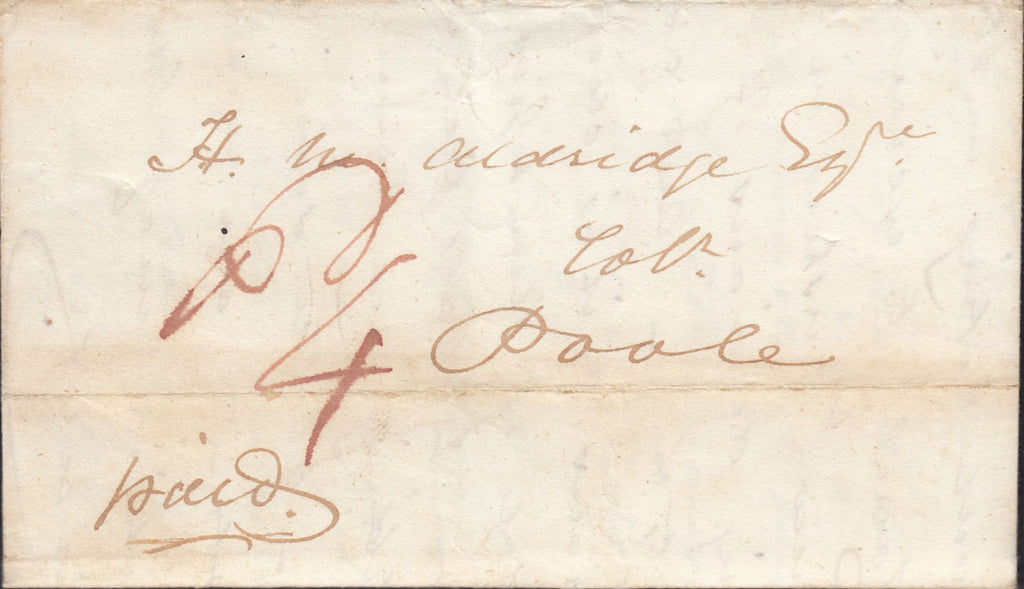 H. M. Aldridge Esqre.
Solr.
Poole
P 4
paid.